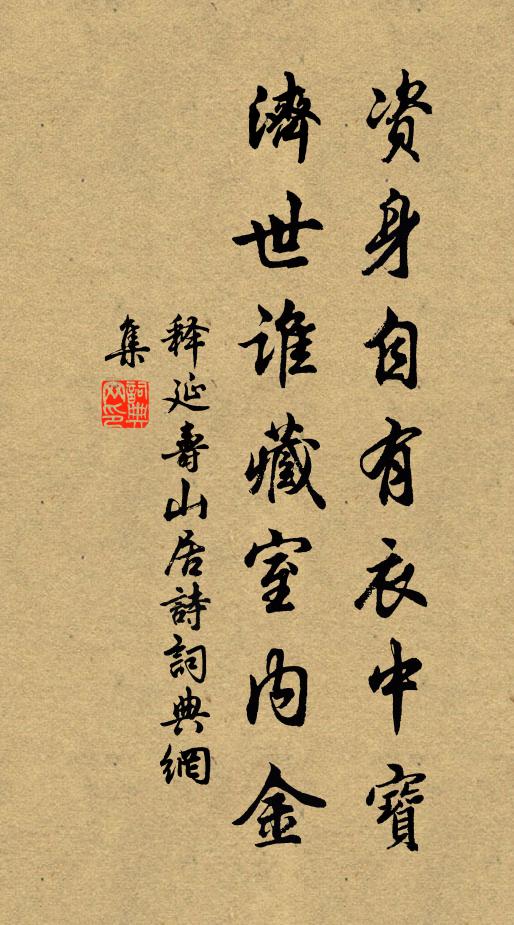 資身自有衣中寶
濟世誰藏室內金
釋延壽山居詩詞典網
集
詞典網印